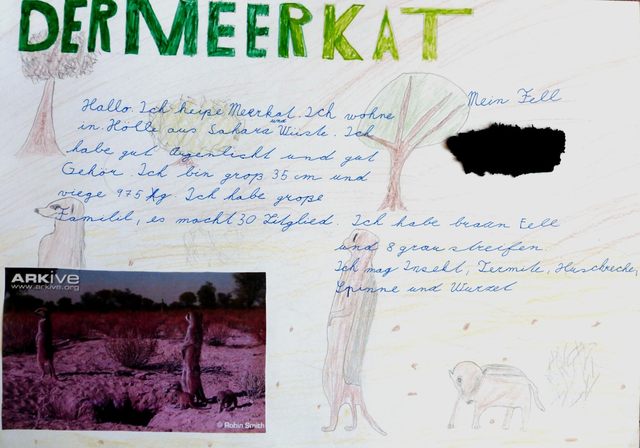 DER MEERKAT
Hallo. Ich heiße Meerkat. Ich wohne
in Hölle aus Sahara und Wüste. Ich
habe gut Augenlicht und gut
Gehör. Ich bin groß 35 cm und
viege 975 kg. Ich habe große
Familie, es macht 30 Litglied.
Mein Fell
Ich habe braun Fell
und 8 grau streifen
Ich mag Insekt, Termite, Huscbreche,
Spinne und Wurzel
ARKive
www.arkive.org
© Robin Smith